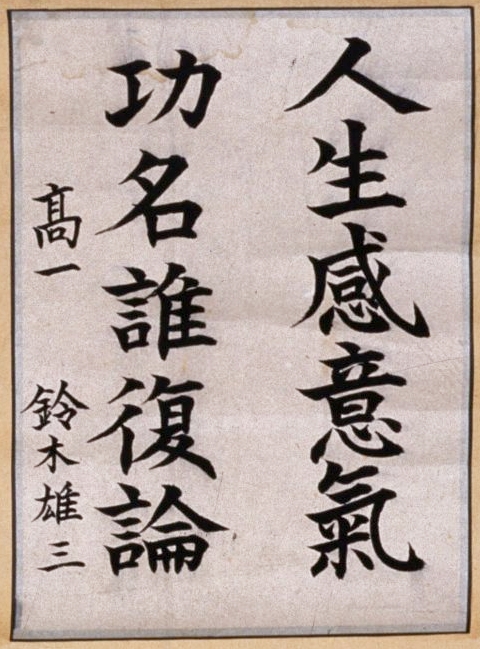 人生感意氣
功名誰復論
髙一 鈴木雄三